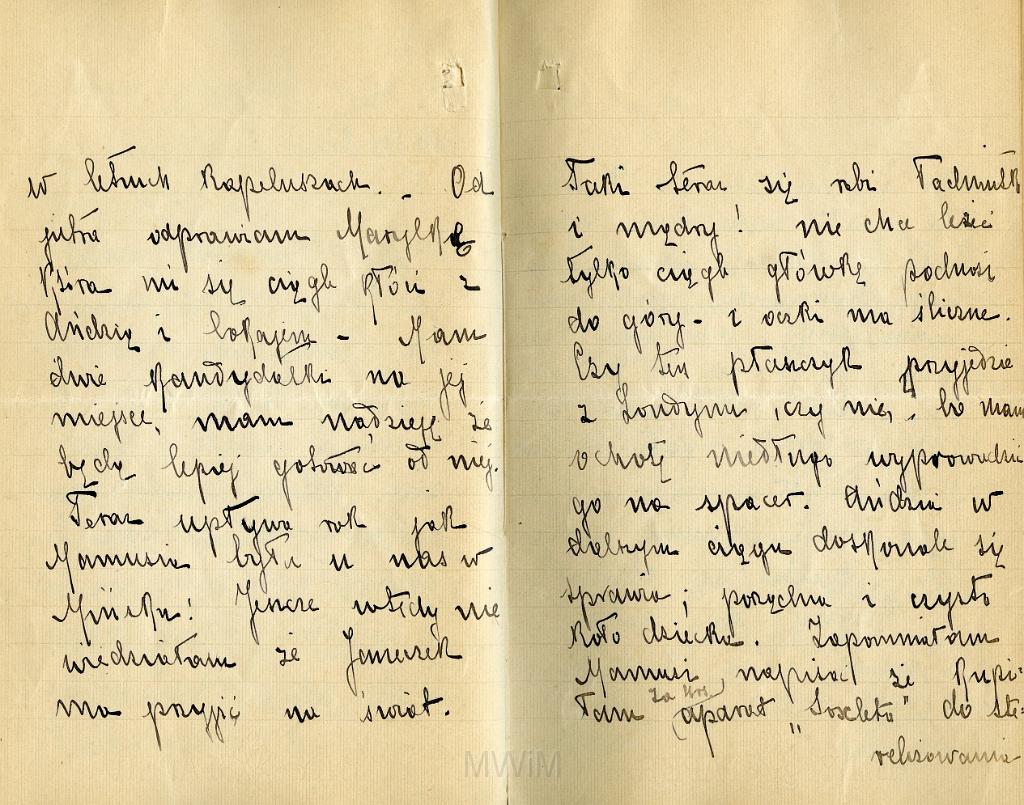 w letnich kapeluszach. - Od
jutra odprawiam Marylkę
która mi się ciągle kłóci z
Andzią i lokajem - Mam
dwie kandydatki na jej
miejsce, mam nadzieję że
będę lepiej gotować od niej.
Teraz upływa rok jak
Mamusia była u nas w
Mińsku! Jeszcze wtedy nie
wiedziałam że Jameczek
ma przyjść na świat.
Taki teraz się robi
i mądry! nie chce leżeć
tylko ciągle główkę podnosi
do góry - i oczki ma śliczne.
Czy ten płaszczyk przyjedzie
z Londynu, czy nie, bo mam
ochotę niedługo wyprowadzić
go na spacer. Andzia w
dalszym ciągu doskonale się
sprawia; porządna i czysta
koło dziecka. Zapomniałam
Mamusi napisać że kupi-
łam aparat „Soxleta" do ste-
relizowania
MWiM